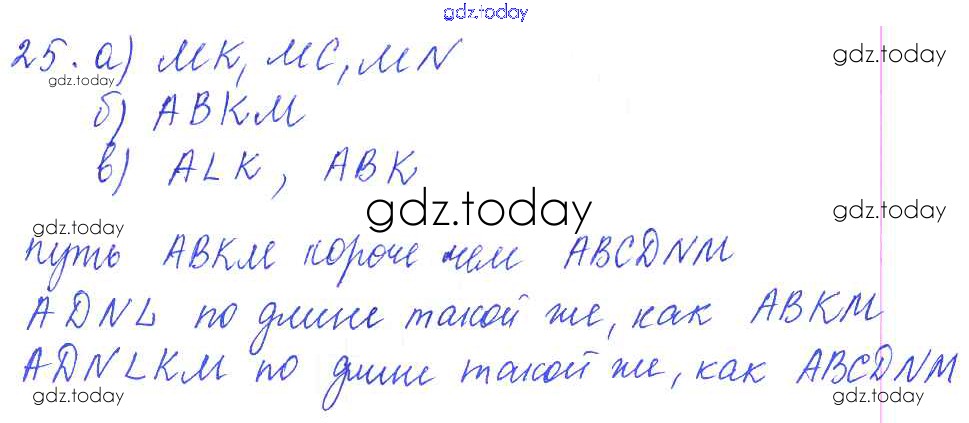 gdz.today
25. а) MK, MC, MN
gdz.today
gdz.today
б) ABKM
в) ALK, ABK
gdz.today
gdz.today
gdz.today
путь ABKM короче чем ABCDNM
ADNL по длине такой же, как ABKM
ADNLKM по длине такой же, как ABCDNM
gdz.today
gdz.today
gdz.today